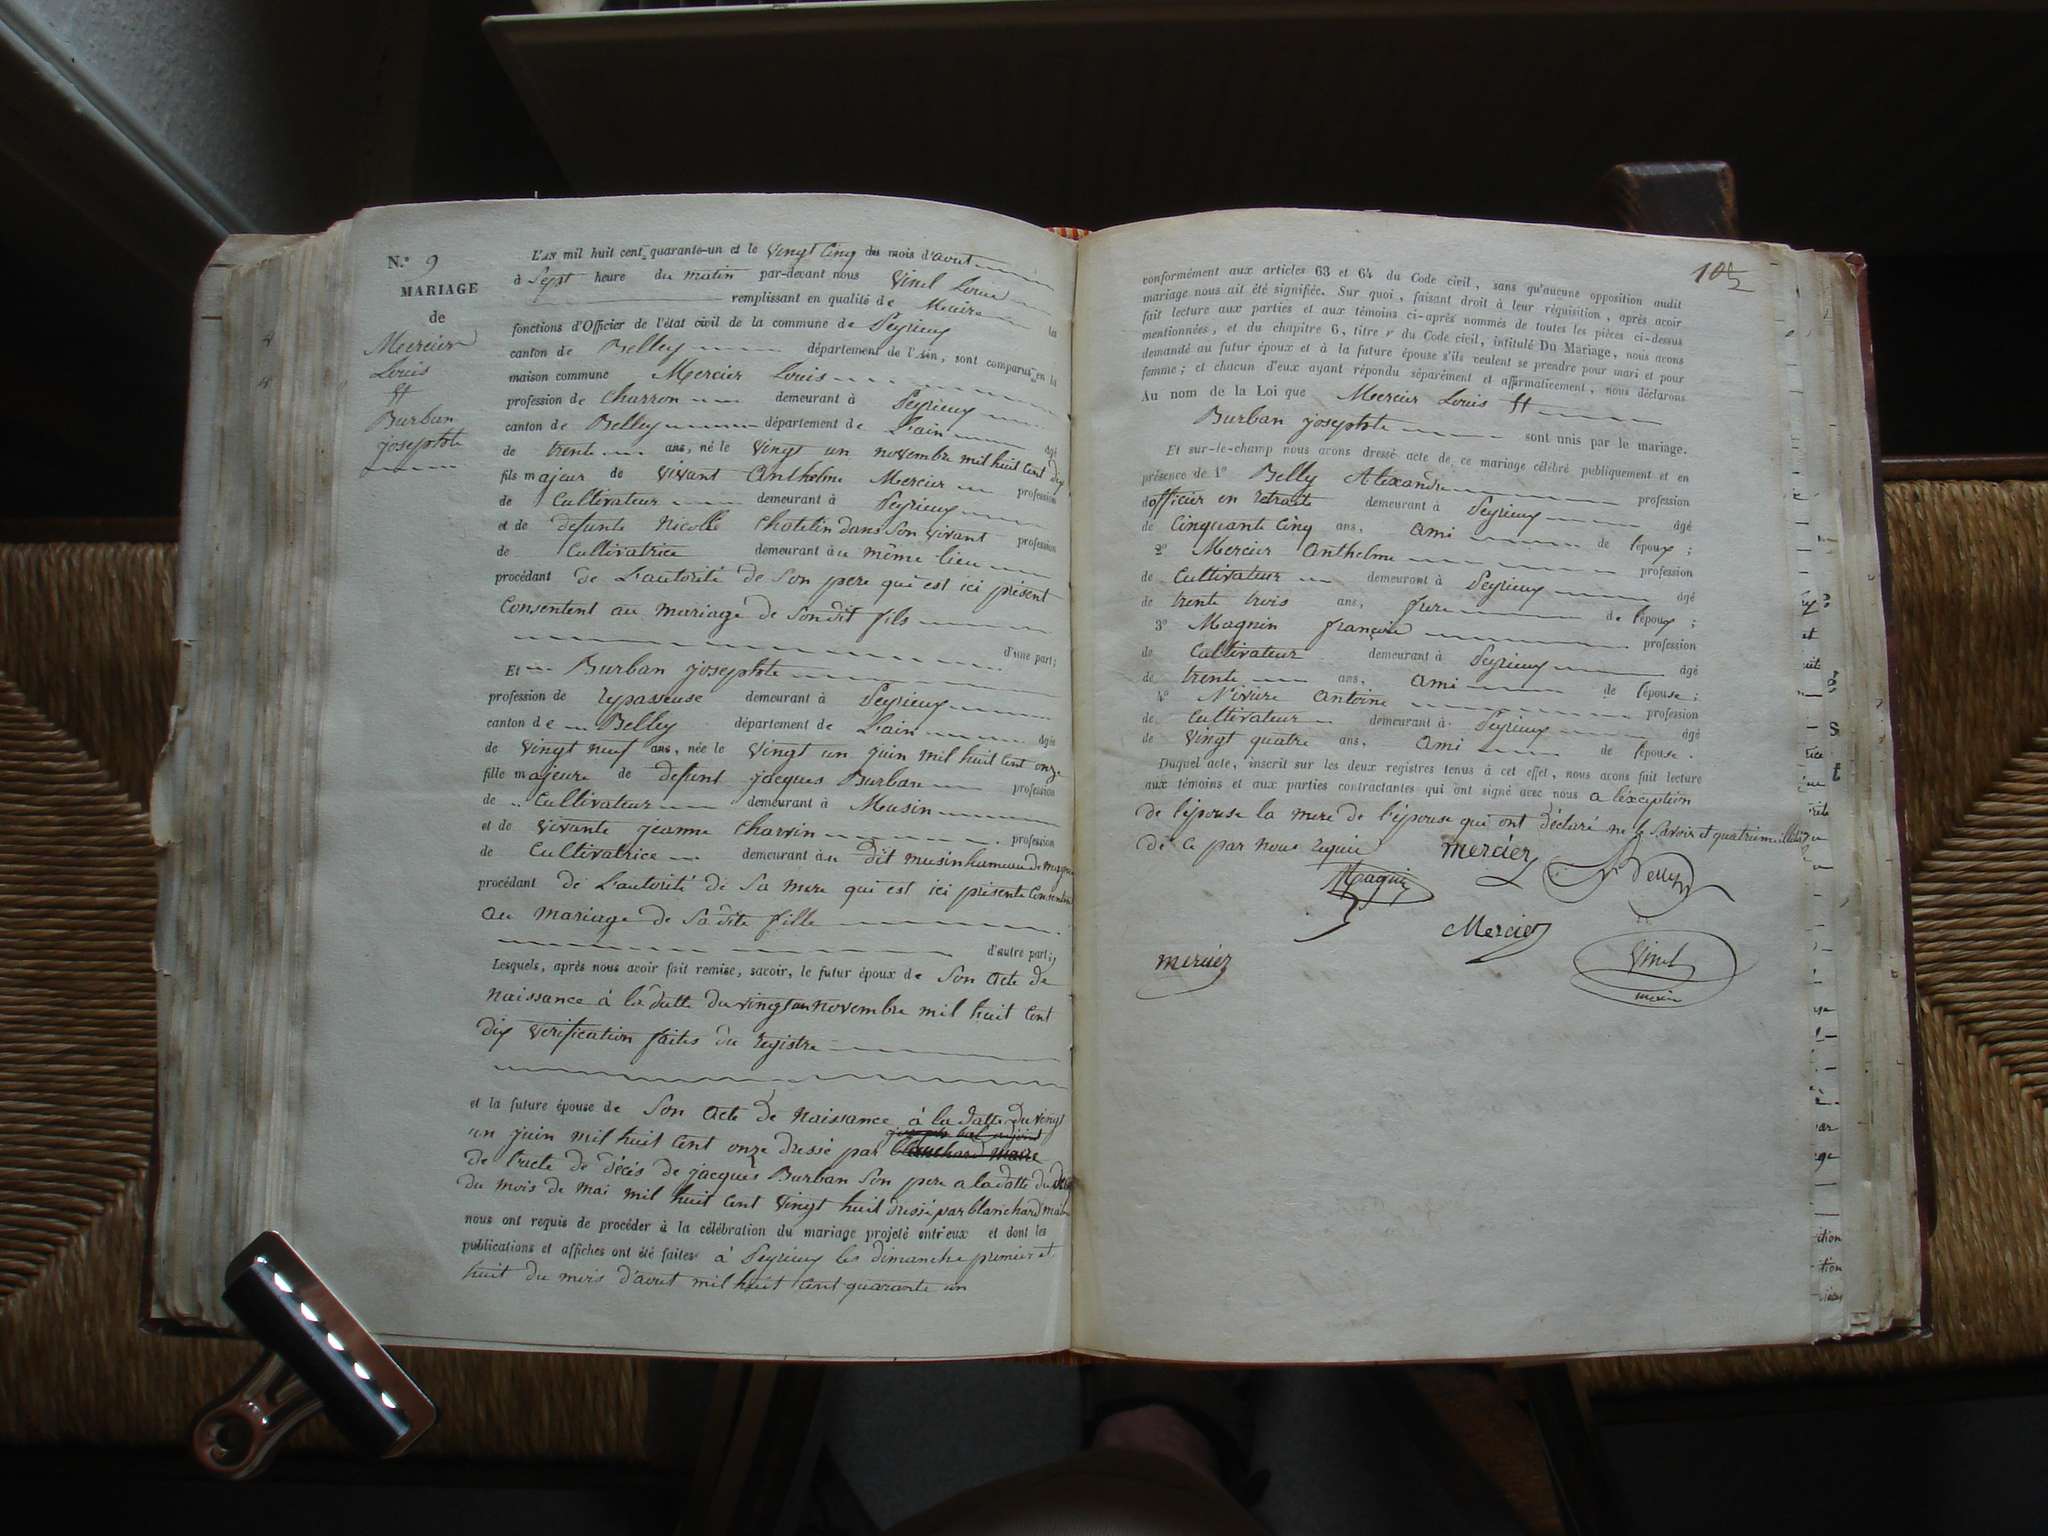 N.° 9
MARIAGE
de
Mercier
Louis
et
Burban
josephte
L'AN mil huit cent quarante-un et le vingt cinq du mois d'aout
à Sept heure du matin par-devant nous Vinel Louis
remplissant en qualité de Maire les
fonctions d'Officier de l'état civil de la commune de Peyrieux
canton de Belley département de l'Ain, sont comparus en la
maison commune Mercier Louis
profession de charron demeurant à Peyrieux
canton de Belley département de L'ain âgé
de trente ans, né le vingt un novembre mil huit cent dix
fils majeur de vivant Anthelme Mercier profession
de Cultivateur demeurant à Peyrieux
et de defunte Nicolle Chatelin dans Son vivant profession
de Cultivatrice demeurant au même lieu
procédant de L'autorité de Son pere qui est ici présent
Consentent au mariage de Sondit fils
d'une part;
Et Burban josephte
profession de repasseuse demeurant à Peyrieux
canton de Belley département de L'ain âgée
de vingt neuf ans, née le vingt un juin mil huit cent onze
fille majeure de defunt jacques Burban profession
de Cultivateur demeurant à Musin
et de vivante jeanne Charvin profession
de Cultivatrice demeurant au dit musin hameau de
procédant de L'autorité de Sa mere qui est ici présente
au mariage de Sadite fille
d'autre part;
Lesquels, après nous avoir fait remise, savoir, le futur époux de Son acte de
Naissance à la datte du vingt un novembre mil huit cent
dix verification faites du registre
et la future épouse de Son acte de Naissance à la datte du vingt
un juin mil huit cent onze dressé par blanchard maire
de l'acte de décés de jacques Burban Son pere a la datte du
du mois de mai mil huit cent vingt huit dressé par blanchard maire
nous ont requis de procéder à la célébration du mariage projeté entr'eux et dont les
publications et affiches ont été faites à Peyrieux les dimanche premier et
huit du mois d'aout mil huit cent quarante un
105
conformément aux articles 63 et 64 du Code civil, sans qu'aucune opposition audit
mariage nous ait été signifiée. Sur quoi, faisant droit à leur réquisition, après avoir
fait lecture aux parties et aux témoins ci-après nommés de toutes les pièces ci-dessus
mentionnées, et du chapitre 6, titre v du Code civil, intitulé Du Mariage, nous avons
demandé au futur époux et à la future épouse s'ils veulent se prendre pour mari et pour
femme; et chacun d'eux ayant répondu séparément et affirmativement, nous déclarons
Au nom de la Loi que Mercier Louis et
Burban josephte sont unis par le mariage.
Et sur-le-champ nous avons dressé acte de ce mariage célébré publiquement et en
présence de 1° Belly Alexandre profession
d'officier en retraite demeurant à Peyrieux âgé
de Cinquante Cinq ans, ami de l'époux;
2° Mercier Anthelme profession
de Cultivateur demeurant à Peyrieux âgé
de trente trois ans, frere de l'époux;
3° Magnin françois profession
de Cultivateur demeurant à Peyrieux âgé
de trente ans, ami de l'épouse;
4° Nivure Antoine profession
de Cultivateur demeurant à Peyrieux âgé
de vingt quatre ans, ami de l'épouse.
Duquel acte, inscrit sur les deux registres tenus à cet effet, nous avons fait lecture
aux témoins et aux parties contractantes qui ont signé avec nous a l'éxception
de l'épouse la mere de l'épouse qui ont déclaré ne le Savoir et quatrieme
de Ce par nous requis mercier Belly
Magnin
Mercier
mercier Vinel
maire